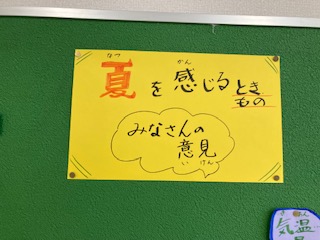 なつ かん
夏を感じるとき
もの
みなさんの
意見
いけん
気温